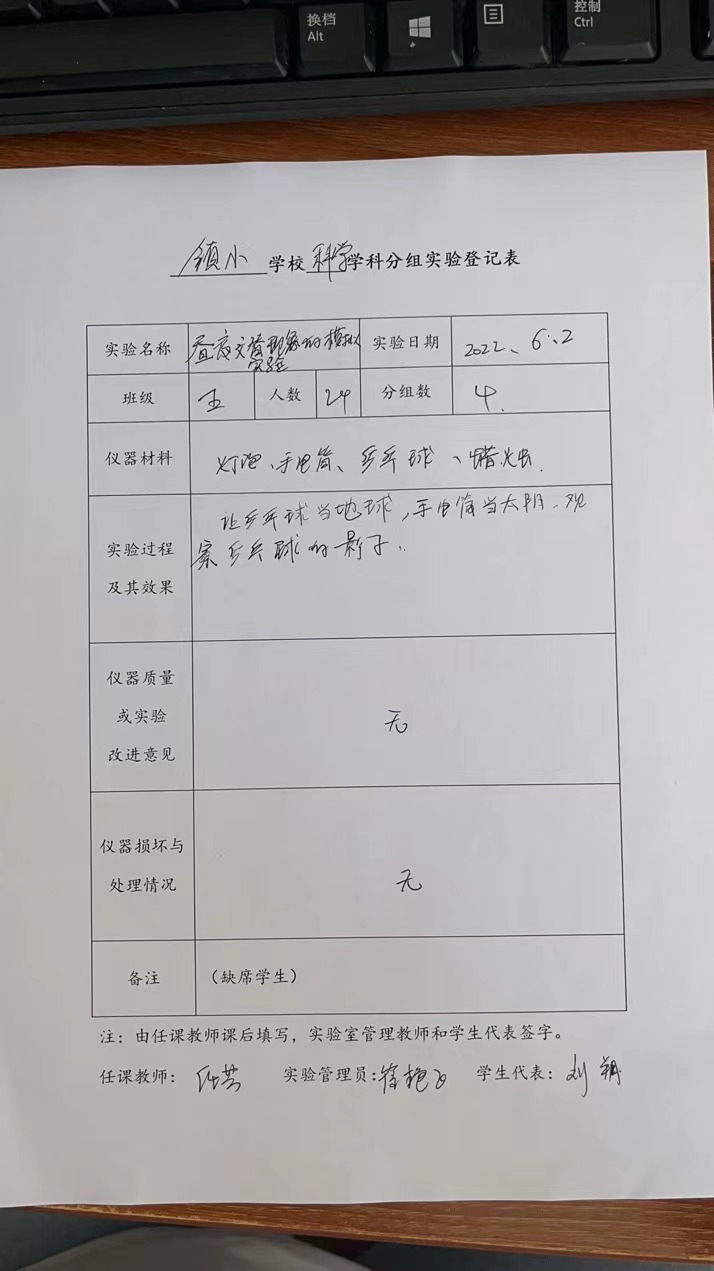 换档
Alt
控制
Ctrl
镇小 学校 科学 学科分组实验登记表
实验名称 昼夜交替现象的模拟实验 实验日期 2022、6、2
班级 五 人数 24 分组数 4.
仪器材料 灯泡、手电筒、乒乓球、蜡烛.
实验过程
及其效果
让乒乓球当地球,手电筒当太阳.观
察乒乓球的影子.
仪器质量
或实验
改进意见
无
仪器损坏与
处理情况
无
备注 (缺席学生)
注:由任课教师课后填写,实验室管理教师和学生代表签字。
任课教师: 实验管理员: 学生代表:刘